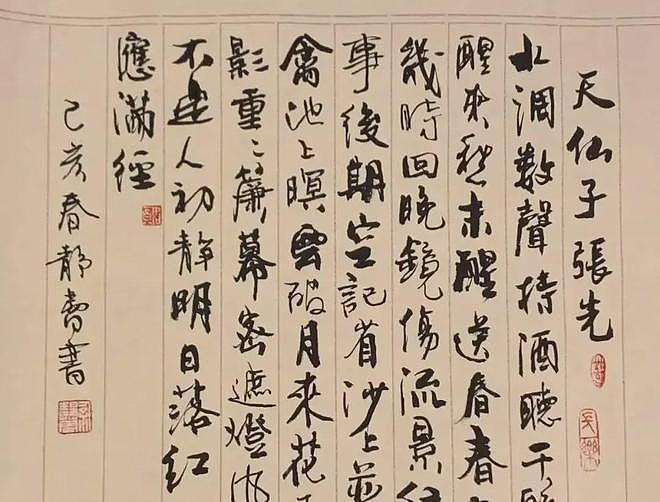 天仙子 張先
水調數聲持酒聽午
醒來愁未醒送春春
幾時回晚鏡傷流景
事後期空記省沙上並
禽池上暝雲破月來花
影重〻簾幕密遮燈風
不定人初靜明日落紅
應滿徑
己亥春靜書